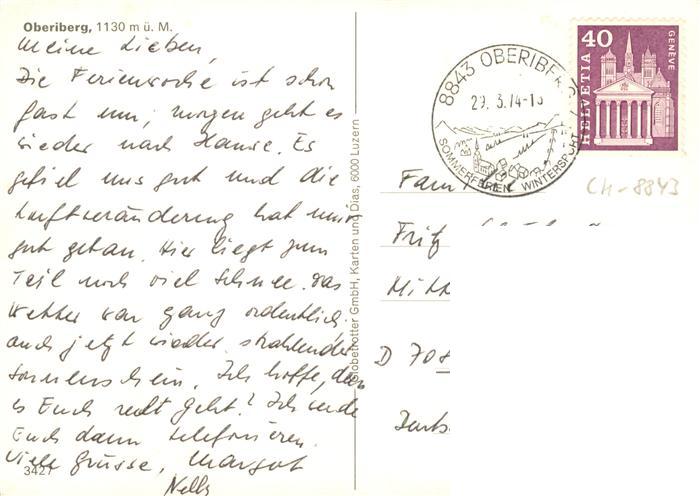 Oberiberg, 1130 m ü. M.
Meine Lieben,
Die Ferienwoche ist schon
fast um, morgen geht es
wieder nach Hause. Es
gefiel uns gut und die
Luftveränderung hat uns
gut getan. Hier liegt zum
Teil noch viel Schnee. Das
Wetter war ganz ordentlich,
auch jetzt wieder strahlender
Sonnenschein. Ich hoffe, dass
es Euch recht geht! Ich werde
Euch dann telefonieren.
Viele Grüsse, Margot
Nelly
3427
Globetrotter GmbH, Karten und Dias, 6000 Luzern
8843 OBERIBERG
29. 3.74-15
SOMMERFERIEN WINTERSPORT
40
HELVETIA
GENÈVE
CH-8843
Fam
Fritz
Mitt
D 708
Deuts